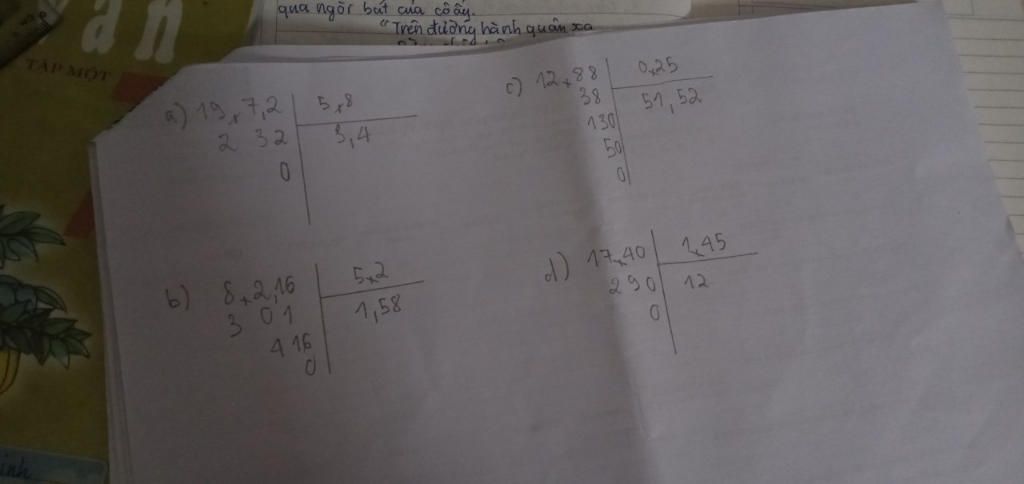 qua ngòi bút của cô ấy.
"Trên đường hành quân xa
văn
TẬP MỘT
a) 19,7,2 5,8
2 32 3,4
0
c) 12,88 0,25
38 51,52
130
50
0
b) 8,2,16 5,2
3 01 1,58
4 16
0
d) 17,40 1,45
2 90 12
0
inh